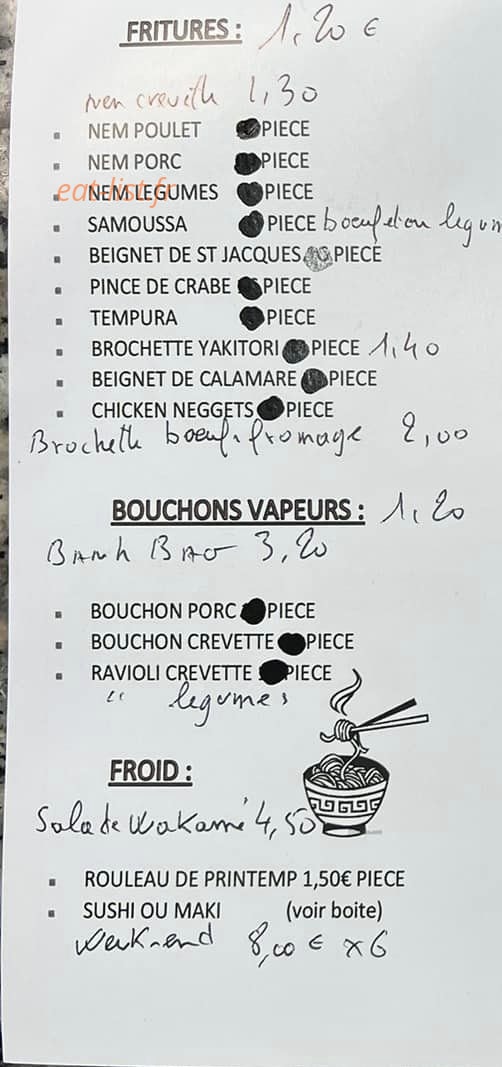 FRITURES : 1,20 €
nem crevette 1,30
NEM POULET PIECE
NEM PORC PIECE
NEM LEGUMES PIECE
eat-list.fr
SAMOUSSA PIECE boeuf et ou legum
BEIGNET DE ST JACQUES PIECE
PINCE DE CRABE PIECE
TEMPURA PIECE
BROCHETTE YAKITORI PIECE 1,40
BEIGNET DE CALAMARE PIECE
CHICKEN NEGGETS PIECE
Brochette boeuf-fromage 2,00
BOUCHONS VAPEURS : 1,20
BANH BAO 3,20
BOUCHON PORC PIECE
BOUCHON CREVETTE PIECE
RAVIOLI CREVETTE PIECE
" legumes
FROID :
Salade Wakamé 4,50
ROULEAU DE PRINTEMP 1,50€ PIECE
SUSHI OU MAKI (voir boite)
Week-end 8,00 € x6